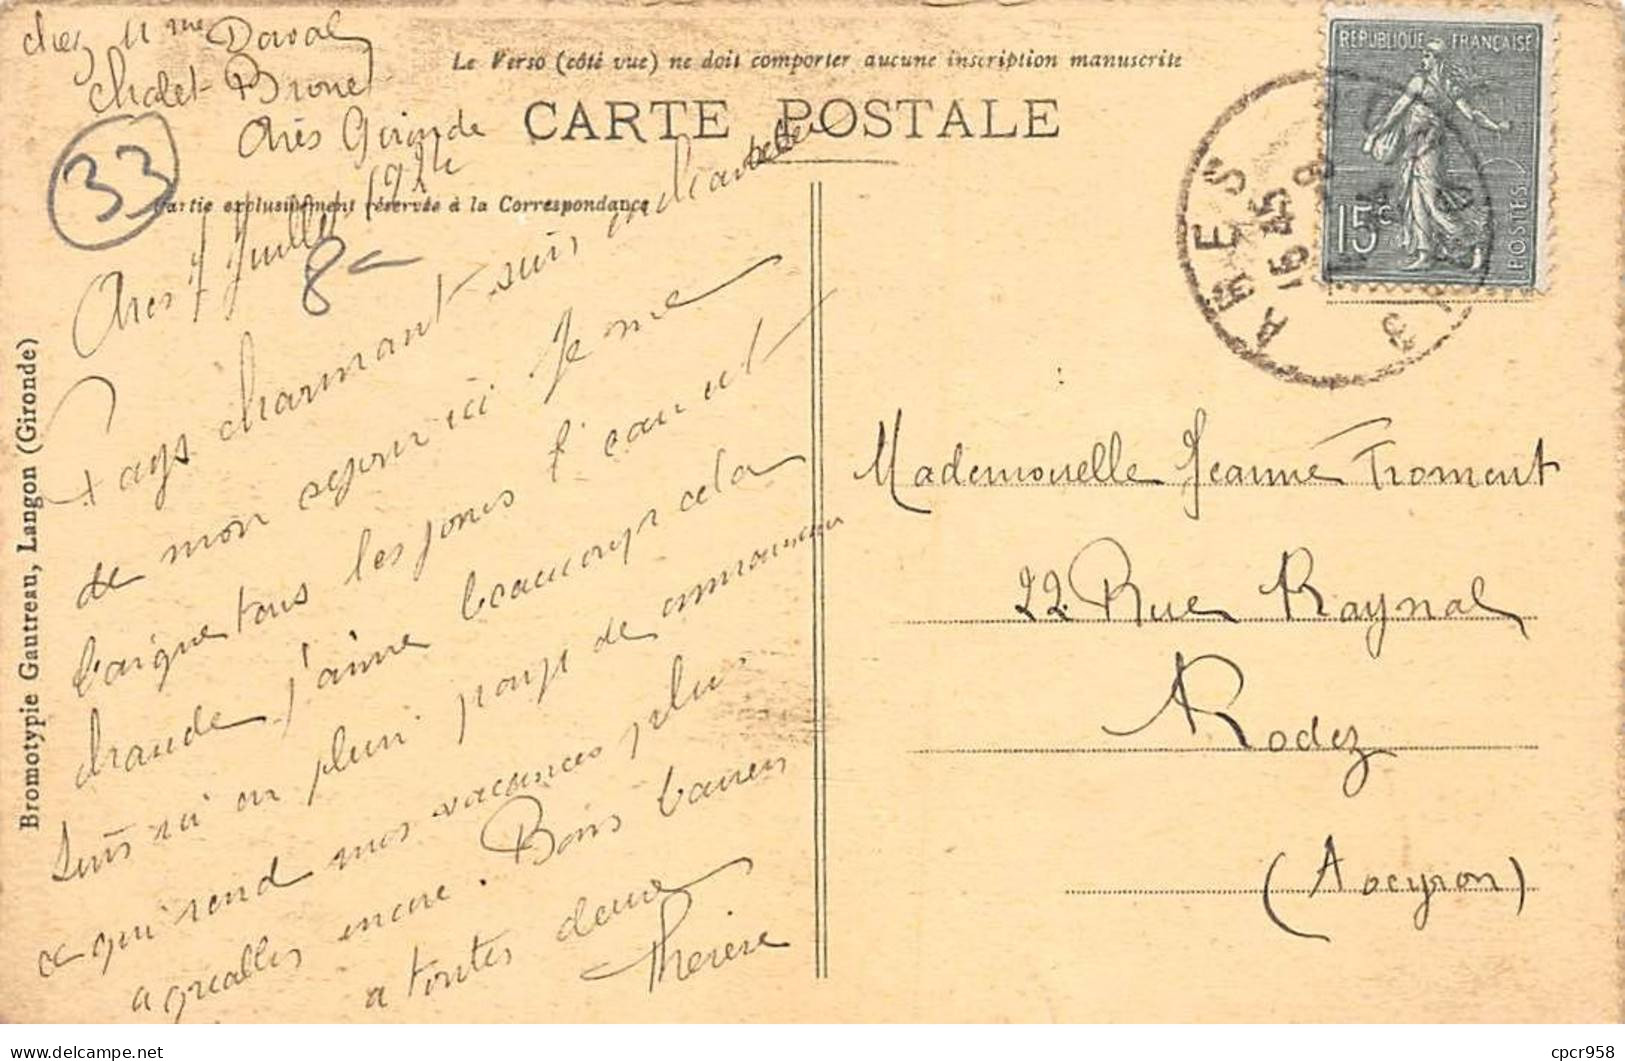 chez Mme Daval
Chalet Bronet
Arès Gironde
33
Le Verso (côté vue) ne doit comporter aucune inscription manuscrite
CARTE POSTALE
Partie exclusivement réservée à la Correspondance
Ares 7 Juillet 1924
8-
Pays charmant suis enchantée
de mon sejour ici Je me
baigne tous les jours l'eau est
chaude j'aime beaucoup cela
Suis ici en plein pays de
ce qui rend mes vacances plus
agréables encore. Bons baisers
a toutes deux
Therese
Bromotypie Gautreau, Langon (Gironde)
REPUBLIQUE FRANÇAISE
15c
POSTES
ARES
GIRONDE
15 45
Mademoiselle Jeanne Froment
22 Rue Raynal
Rodez
(Aveyron)
cpcr958